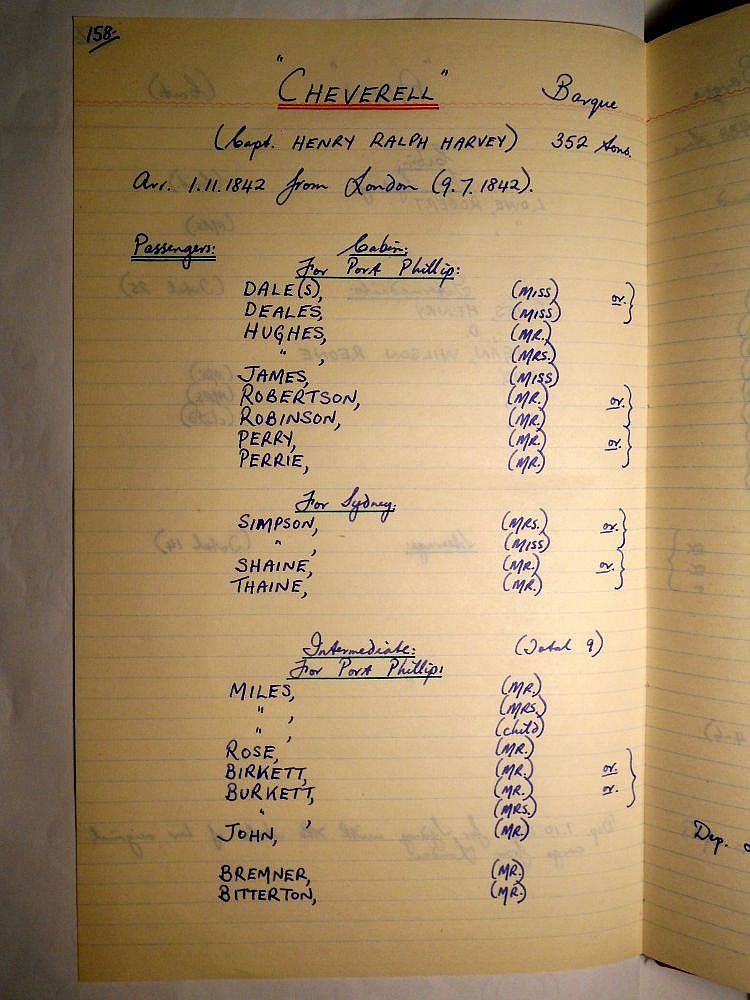 158.
"CHEVERELL" Barque
(Capt. HENRY RALPH HARVEY) 352 tons.
Arr. 1.11.1842 from London (9.7.1842).
Passengers: Cabin:
For Port Phillip:
DALE(S), (MISS) or. }
DEALES, (MISS)
HUGHES, (MR.)
" , (MRS.)
JAMES, (MISS)
ROBERTSON, (MR.) or. }
ROBINSON, (MR.)
PERRY, (MR.) or. }
PERRIE, (MR.)
For Sydney:
SIMPSON, (MRS.) or. }
" , (MISS)
SHAINE, (MR.) or. }
THAINE, (MR.)
Intermediate: (Total 9)
For Port Phillip:
MILES, (MR.)
" , (MRS.)
" , (child)
ROSE, (MR.)
BIRKETT, (MR.) or. }
BURKETT, (MR.) or.
" , (MRS.)
JOHN, (MR.)
BREMNER, (MR.)
BITTERTON, (MR.)
Dep.